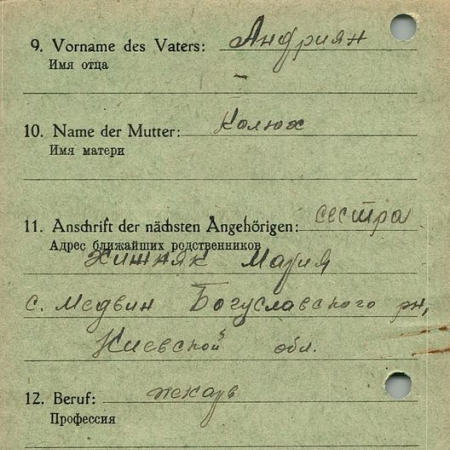 9. Vorname des Vaters: Андриян
Имя отца
10. Name der Mutter: Колюх
Имя матери
11. Anschrift der nächsten Angehörigen: сестра
Адрес ближайших родственников
Хижняк Мария
с. Медвин Богуславского рн,
Киевской обл.
12. Beruf: пекарь
Профессия